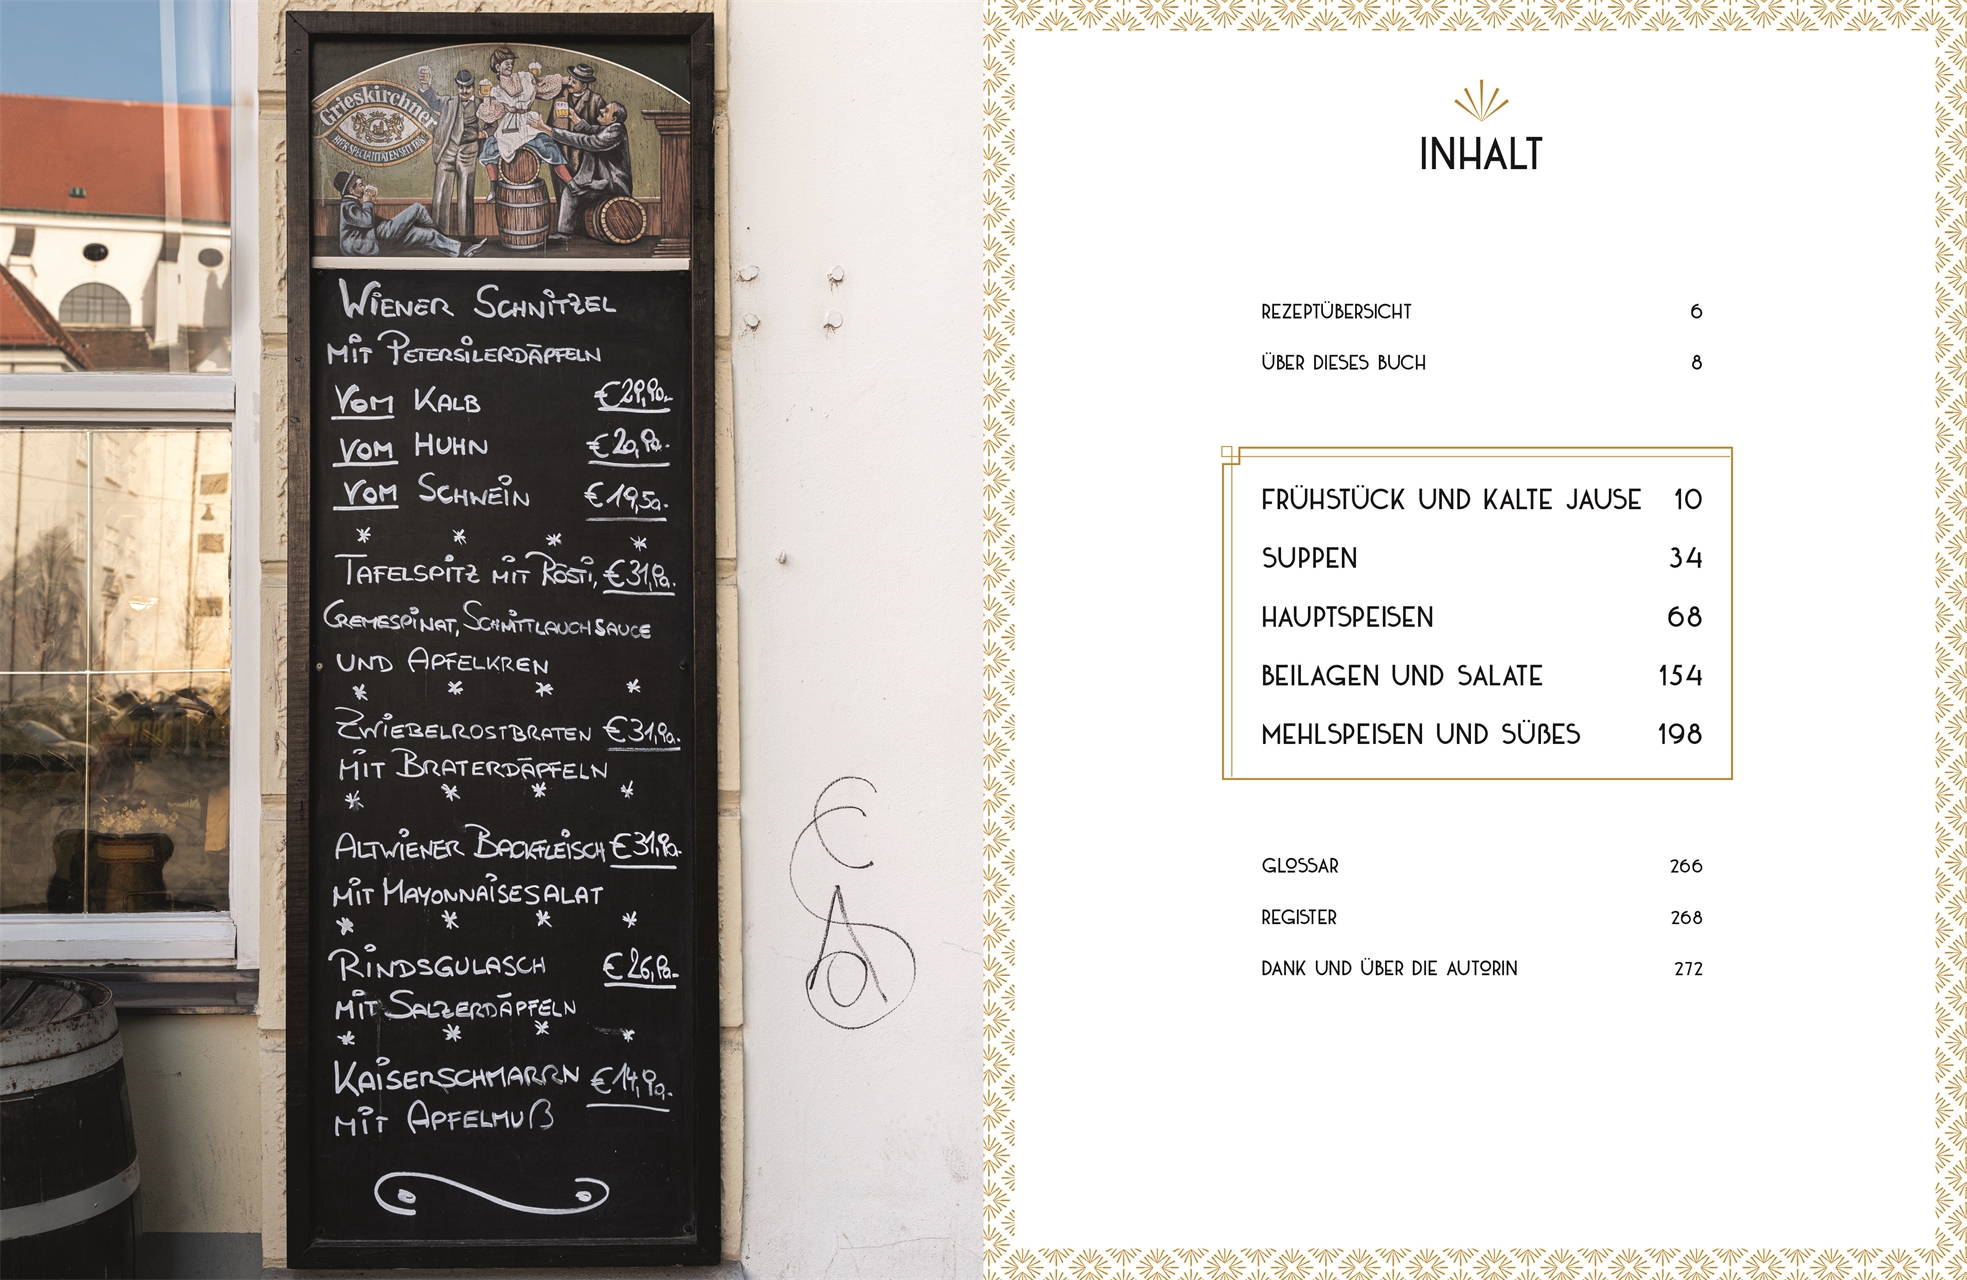 Grieskirchner
BIER-SPEZIALITÄTEN SEIT 1708
WIENER SCHNITZEL
MIT PETERSILERDÄPFELN
VOM KALB €29,90.-
VOM HUHN €20,90.
VOM SCHWEIN €19,50.
TAFELSPITZ MIT RÖSTI, €31,90.
CREMESPINAT, SCHNITTLAUCHSAUCE
UND APFELKREN
ZWIEBELROSTBRATEN €31,90.
MIT BRATERDÄPFELN
ALTWIENER BACKFLEISCH €31,90.
MIT MAYONNAISESALAT
RINDSGULASCH €26,90.
MIT SALZERDÄPFELN
KAISERSCHMARRN €14,90.
MIT APFELMUß
INHALT
REZEPTÜBERSICHT 6
ÜBER DIESES BUCH 8
FRÜHSTÜCK UND KALTE JAUSE 10
SUPPEN 34
HAUPTSPEISEN 68
BEILAGEN UND SALATE 154
MEHLSPEISEN UND SÜßES 198
GLOSSAR 266
REGISTER 268
DANK UND ÜBER DIE AUTORIN 272